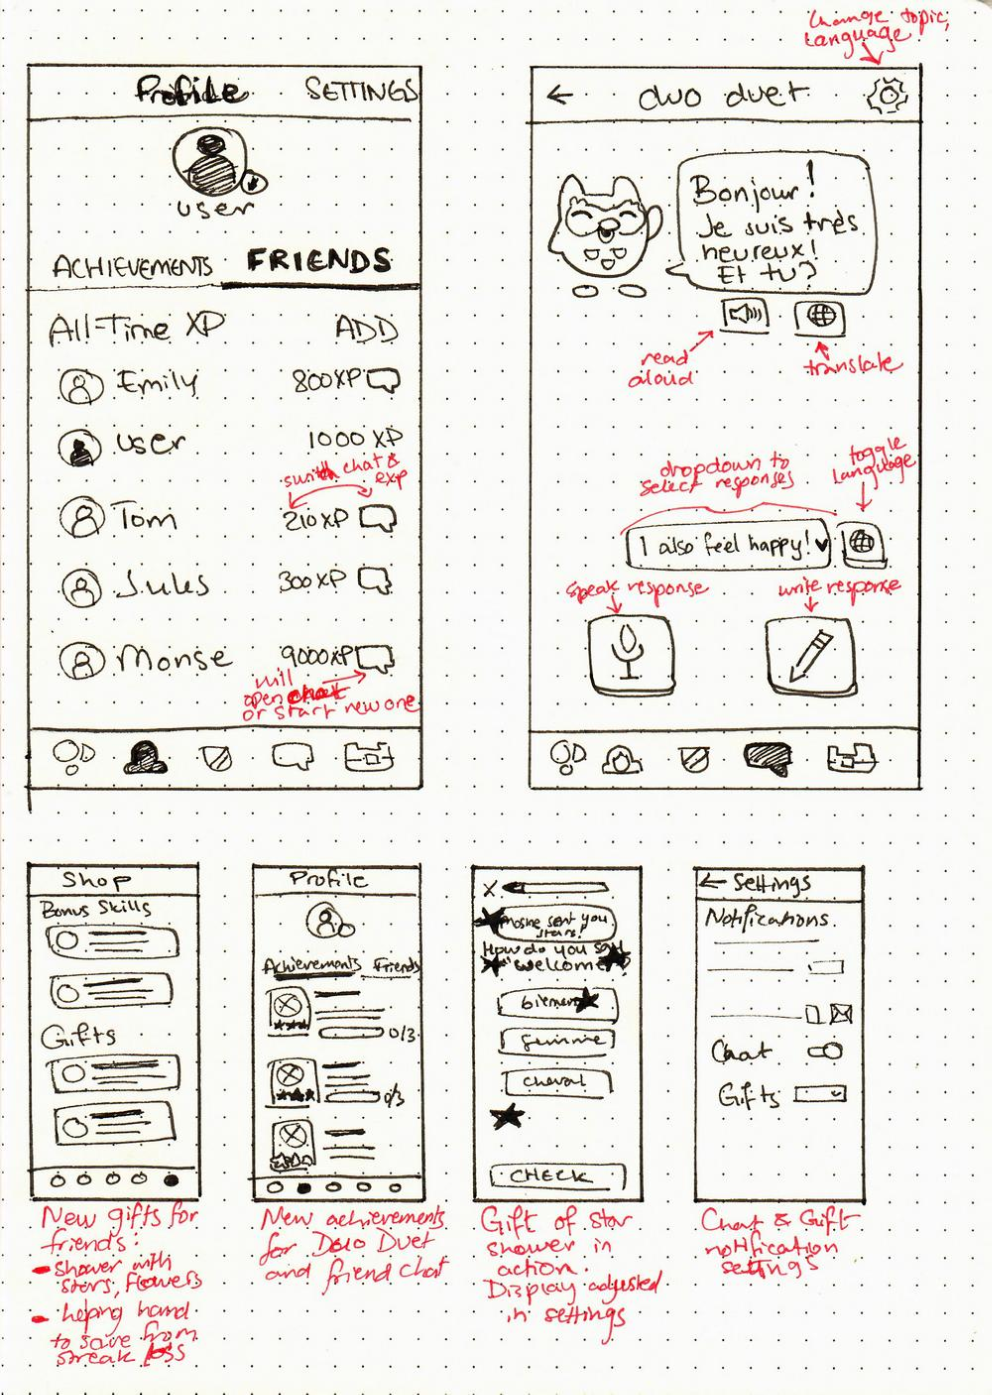 change topic,
language
Profile SETTINGS
user
ACHIEVEMENTS FRIENDS
All-Time XP ADD
Emily 800XP
user 1000 XP
switch chat &
exp
Tom 210XP
Jules 300XP
Monse 9000XP
will
open chat
or start new one
duo duet
Bonjour!
Je suis très
heureux!
Et tu?
read
aloud
translate
dropdown to
select responses
toggle
language
I also feel happy!
speak response
write response
Shop
Bonus Skills
Gifts
New gifts for
friends:
- shower with
stars, flowers
- helping hand
to save from
streak loss
Profile
Achievements Friends
0/3
0/3
New achievements
for Duo Duet
and friend chat
X
sent you
stars!
How do you say
"welcome"
cheval
CHECK
Gift of star
shower in
action.
Display adjusted
in settings
← Settings
Notifications
Chat
Gifts
Chat & Gift
notification
settings